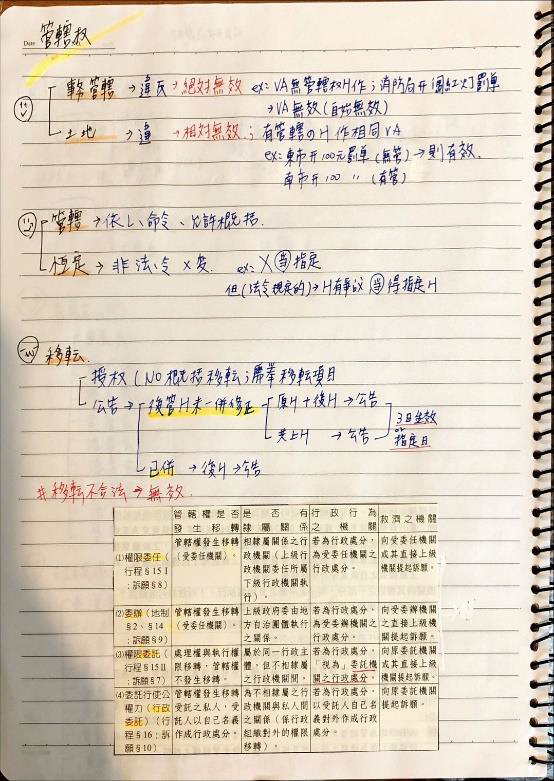 Date
管轄权
事務管轄 → 違反 → 絕對無效 ex= VA無管轄权H作；消防局开闖红灯罰单
→ VA無效(自始無效)
土地 → 違 → 相对無效；有管轄の H 作相同VA
ex= 東市开100元罰單 (無管) → 則有效.
南市开100 〃 (有管)
管轄 → 依L、命令、允許概括.
恆定 → 非法、令 X 变. ex= X 當 指定
但(法令規定的) → H有爭议 當 得指定H
移転.
授权 (NO概括移転；需舉移転項目
公告 → 後管H未一併修正 原H+後H → 公告
共上H → 公告
3日生效
or
指定日
已併 → 後H → 公告
移転不合法 → 無效.
管轄權是否發生移轉
是否有隸屬關係
行政行為之機關
救濟之機關
(1)權限委任（行程§15Ⅰ；訴願§8）
管轄權發生移轉（受委任機關）。
相隸屬關係之行政機關（上級行政機關委任所屬下級行政機關執行）。
若為行政處分，為受委任機關之行政處分。
向受委任機關或其直接上級機關提起訴願。
(2)委辦（地制§2、§14；訴願§9）
管轄權發生移轉（受委任機關）。
上級政府委由地方自治團體執行之關係。
若為行政處分，為受委辦機關之行政處分。
向受委辦機關之直接上級機關提起訴願。
(3)權限委託（行程§15Ⅱ；訴願§7）
處理權與執行權限移轉，管轄權不發生移轉。
屬於同一行政主體，但不相隸屬之行政機關間。
若為行政處分，「視為」委託機關之行政處分。
向原委託機關或其直接上級機關提起訴願。
(4)委託行使公權力（行政委託）（行程§16；訴願§10）
管轄權發生移轉受託之私人，受託人以自己名義作成行政處分。
為不相隸屬之行政機關與私人間之關係（係行政組織對外的權限移轉）。
若為行政處分，以受託人自己名義對外作成行政處分。
向原委託機關提起訴願。